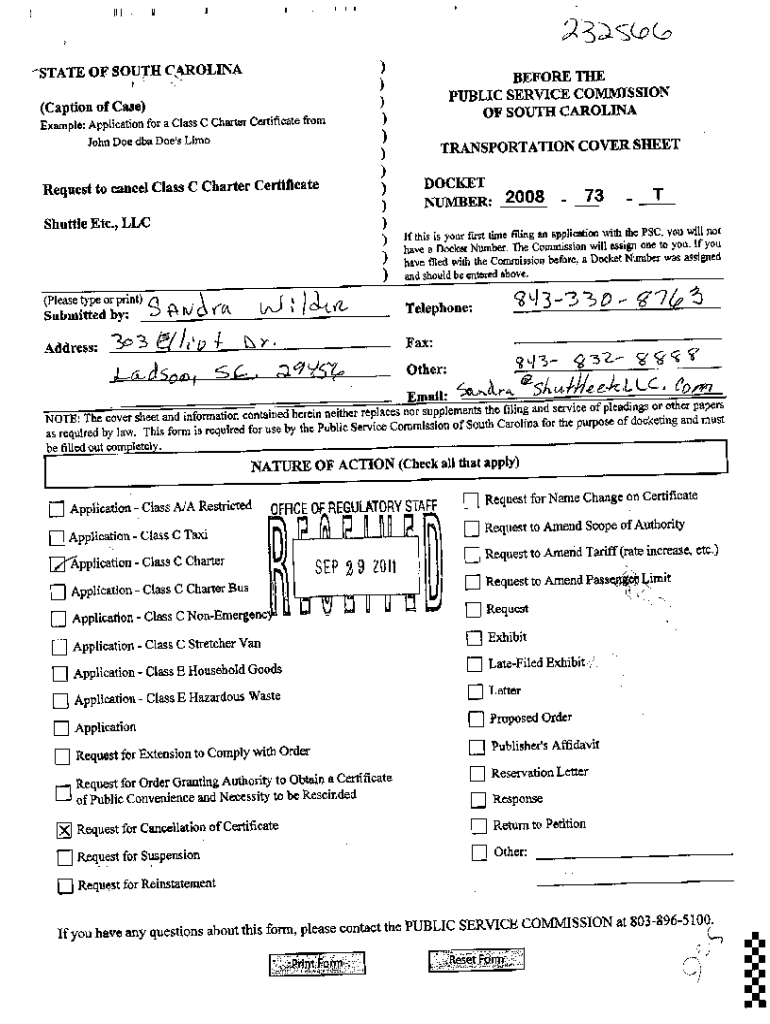 232566
STATE OF SOUTH CAROLINA
(Caption of Case)
Example: Application for a Class C Charter Certificate from
John Doe dba Doe's Limo
Request to cancel Class C Charter Certificate
Shuttle Etc., LLC
BEFORE THE
PUBLIC SERVICE COMMISSION
OF SOUTH CAROLINA
TRANSPORTATION COVER SHEET
DOCKET
NUMBER: 2008 - 73 - T
If this is your first time filing an application with the PSC, you will not
have a Docket Number. The Commission will assign one to you. If you
have filed with the Commission before, a Docket Number was assigned
and should be entered above.
(Please type or print)
Submitted by: Sandra Wilder
Address: 303 Elliot Dr.
Ladson, SC. 29456
Telephone: 843-330-8763
Fax:
Other: 843-832-8888
Email: Sandra@ShuttleetcLLC.Com
NOTE: The cover sheet and information contained herein neither replaces nor supplements the filing and service of pleadings or other papers
as required by law. This form is required for use by the Public Service Commission of South Carolina for the purpose of docketing and must
be filled out completely.
NATURE OF ACTION (Check all that apply)
Application - Class A/A Restricted
Application - Class C Taxi
Application - Class C Charter
Application - Class C Charter Bus
Application - Class C Non-Emergency
Application - Class C Stretcher Van
Application - Class E Household Goods
Application - Class E Hazardous Waste
Application
Request for Extension to Comply with Order
Request for Order Granting Authority to Obtain a Certificate
of Public Convenience and Necessity to be Rescinded
Request for Cancellation of Certificate
Request for Suspension
Request for Reinstatement
OFFICE OF REGULATORY STAFF
RECEIVED
SEP 29 2011
Request for Name Change on Certificate
Request to Amend Scope of Authority
Request to Amend Tariff (rate increase, etc.)
Request to Amend Passenger Limit
Request
Exhibit
Late-Filed Exhibit
Letter
Proposed Order
Publisher's Affidavit
Reservation Letter
Response
Return to Petition
Other:
If you have any questions about this form, please contact the PUBLIC SERVICE COMMISSION at 803-896-5100.
Print Form
Reset Form